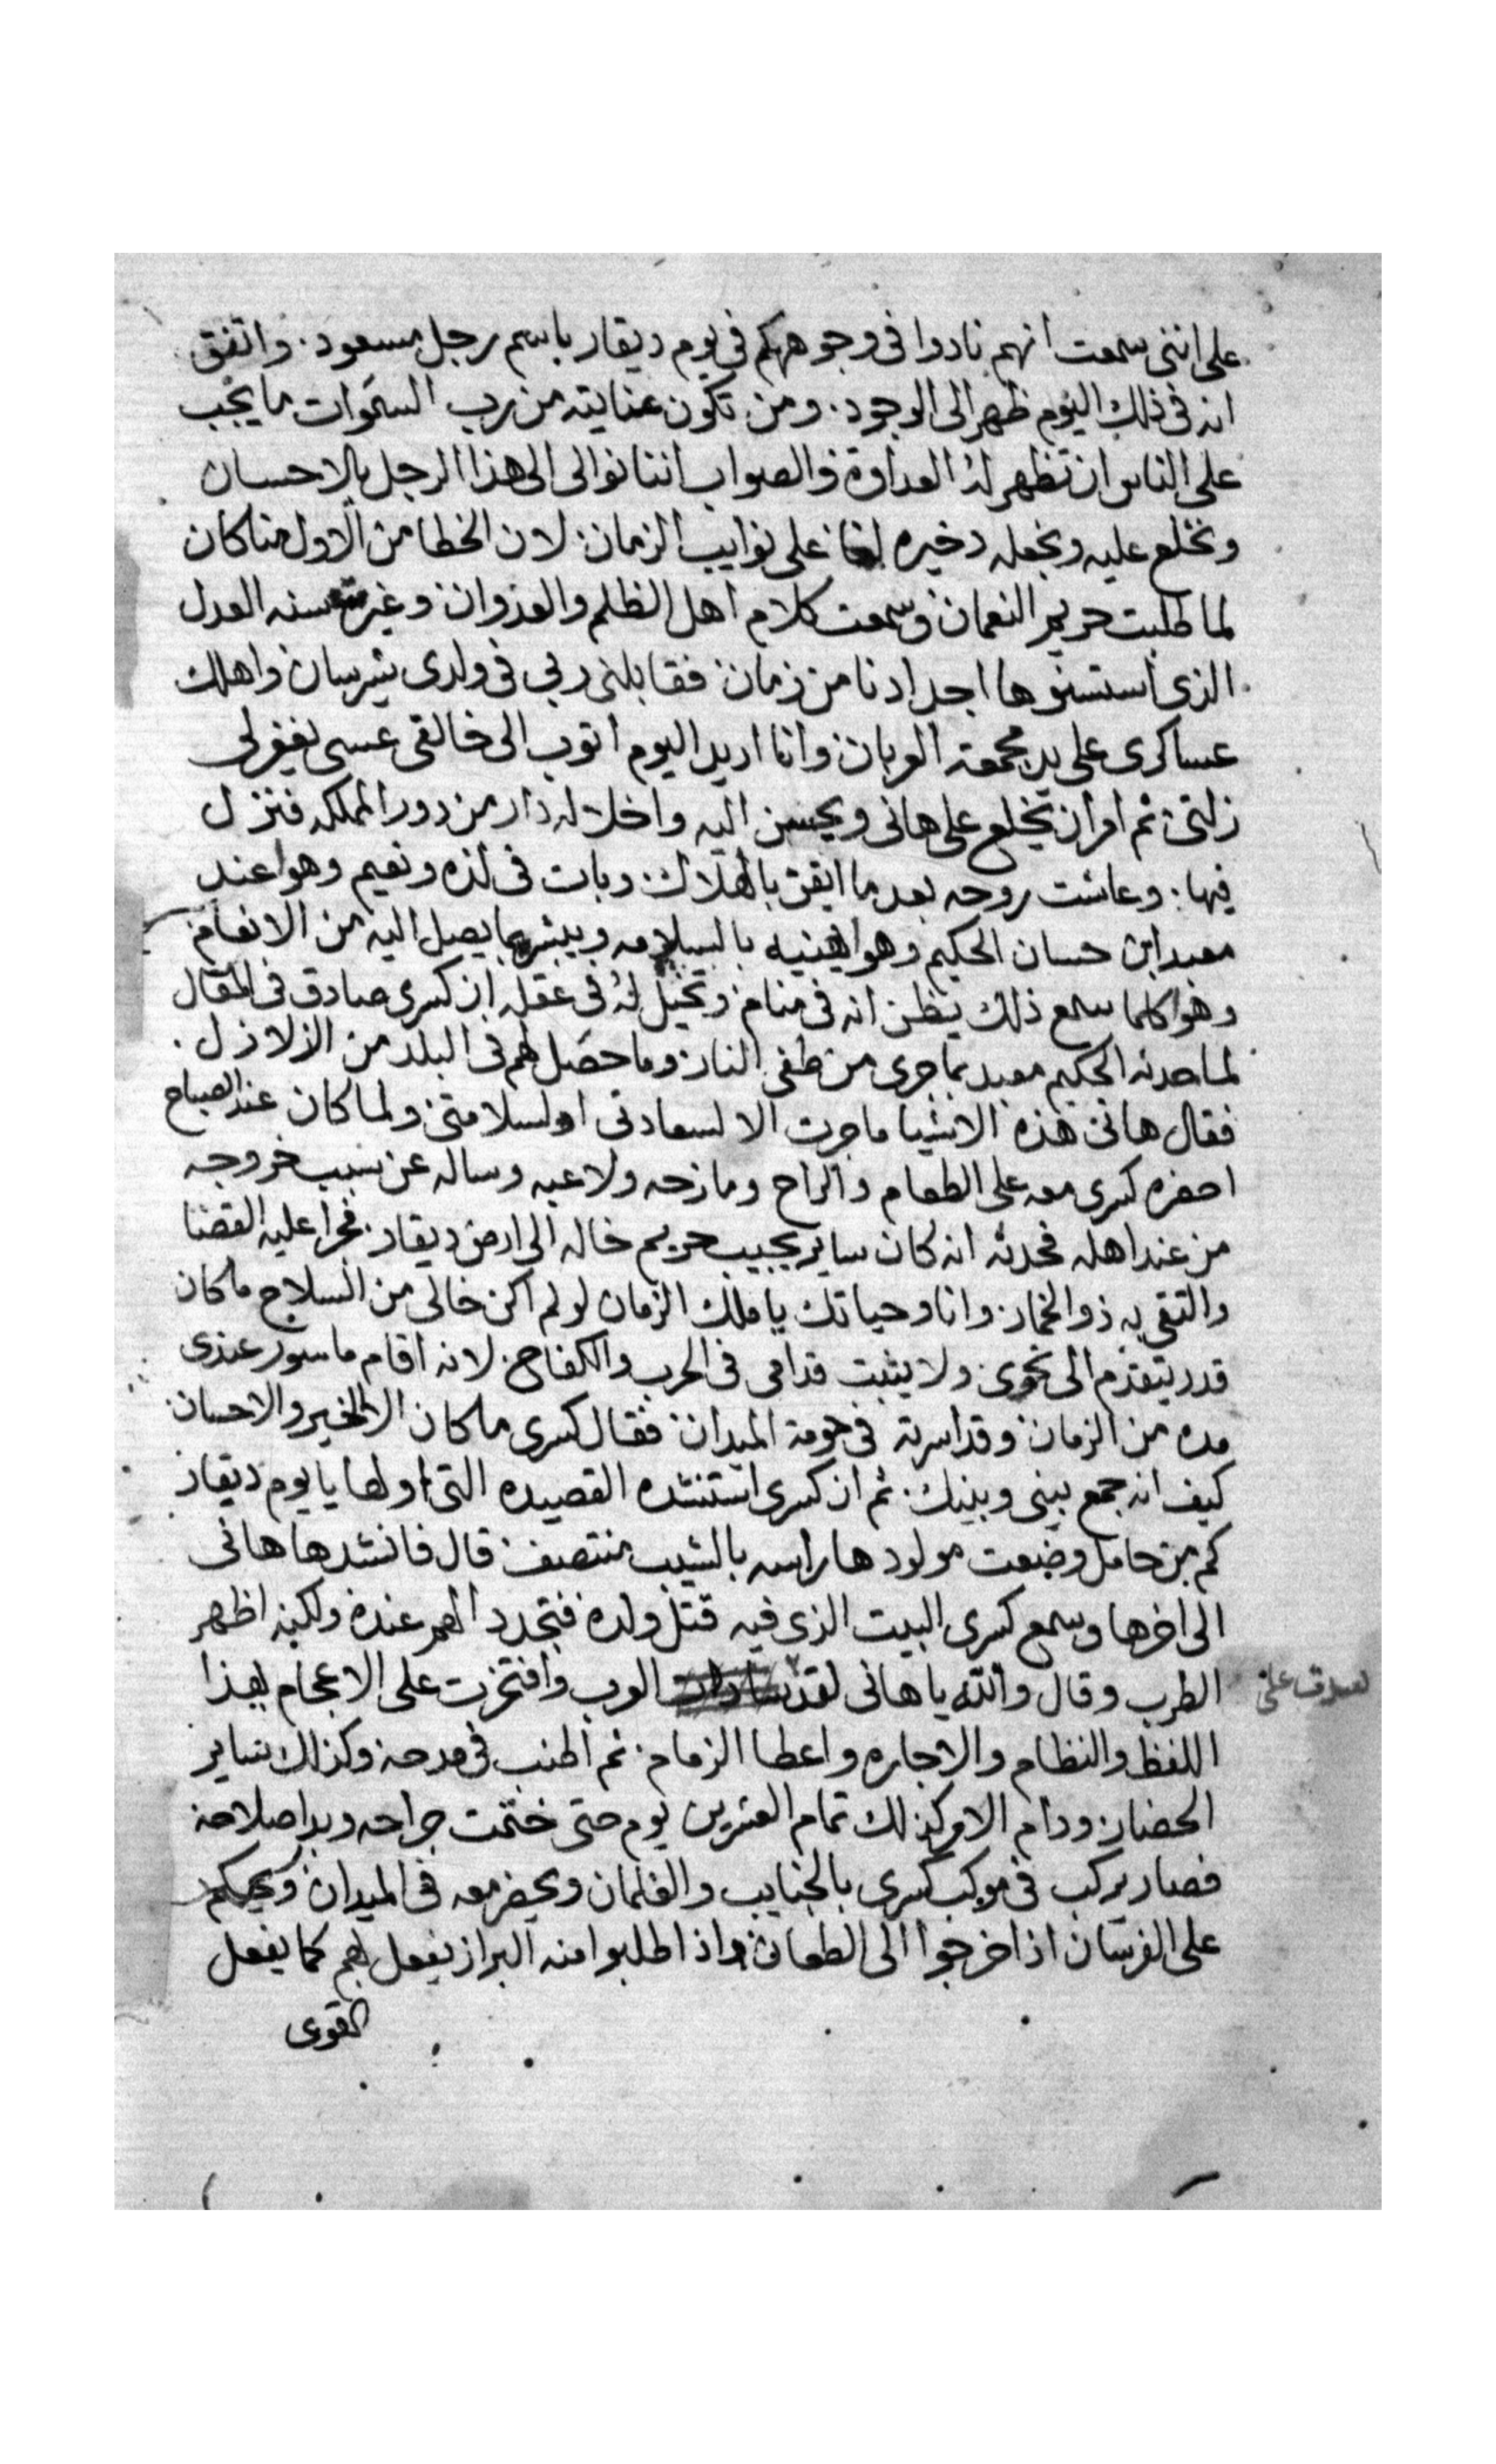 على انني سمعت انهم نادوا في وجوهكم في يوم ديقار باسم رجل مسعود. واتفق
انه في ذلك اليوم ظهر الى الوجود. ومن تكون عنايته من رب السموات ما يجب
على الناس ان تظهر له العداوة والصواب اننا نوالى الى هذا الرجل بالاحسان
ونخلع عليه ونجعله دخيره لنا على نوايب الزمان. لان الخطا من الاول منا كان
لما طلبت حريم النعمان وسمعت كلام اهل الظلم والعدوان وغيرت سنه العدل
الذى استسنوها اجدادنا من زمان فقابلنى ربى فى ولدى شرسان واهلك
عساكرى على يد مجمعة العربان وانا اريد اليوم اتوب الى خالقى عسى يغفر لى
زلتى ثم امر ان يخلع على هانى ويحسن اليه واخلا له دار من دور المملكه فنزل
فيها. وعاشت روحه بعد ما ايقن بالهلاك. وبات فى لذه ونعيم وهوا عند
معبد ابن حسان الحكيم وهوا يهنيه بالسلامه ويبشره بما يصل اليه من الانعام
وهوا كلما سمع ذلك يظن انه فى منام وتخيل له فى عقله ان كسرى صادق فى المقال
لما حدثه الحكيم معبد بما جرى من طفى النار وما حصل لهم فى البلد من الزلازل.
فقال هانى هذه الاشيا ما جرت الا لسعادتى او لسلامتى ولما كان عند الصباح
احضره كسرى معه على الطعام والراح ومازحه ولاعبه وساله عن سبب خروجه
من عند اهله فحدثه انه كان ساير يجيب حريم خاله الى ارض ديقار. فجرا عليه القضا
والتقى به ذو الخمار وانا وحياتك يا ملك الزمان لو لم اكن خالى من السلاح ما كان
قدر يتقدم الى نحوى ولا يثبت قدامى فى الحرب والكفاح لانه اقام ماسور عندى
مده من الزمان وقد اسرته فى حومة الميدان فقال كسرى ما كان الا الخير والاحسان
كيف انه جمع بينى وبينك. ثم ان كسرى استنشده القصيده التى اولها يا يوم ديقار
كم من حامل وضعت مولودها راسه بالشيب منتصف قال فانشدها هانى
الى اخرها وسمع كسرى البيت الذى فيه قتل ولده فتجدد الهم عنده ولكنه اظهر
الطرب وقال والله يا هانى لقد العرب وافتخرت على الاعجام بهذا
اللفظ والنظام والاجاره واعطا الزمام. ثم اطنب فى مدحه وكذلك ساير
الحضار ودام الامر كذلك تمام العشرين يوم حتى ختمت جراحه وبدا صلاحه
فصار يركب فى موكب كسرى بالجنايب والغلمان ويحضر معه فى الميدان ويحكم
على الفرسان اذا خرجوا الى الطعان واذا طلبوا منه البراز يفعل بهم كما يفعل
القوى